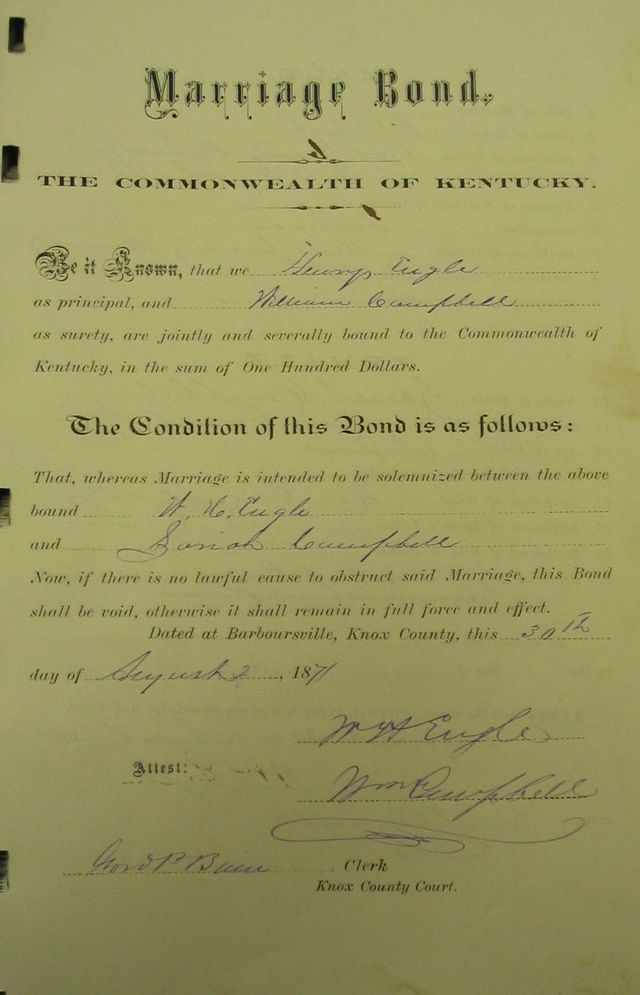 Marriage Bond.
THE COMMONWEALTH OF KENTUCKY.
Be it Known, that we Engle
as principal, and William Campbell
as surety, are jointly and severally bound to the Commonwealth of
Kentucky, in the sum of One Hundred Dollars.
The Condition of this Bond is as follows:
That, whereas Marriage is intended to be solemnized between the above
bound W. H. Engle
and Campbell
Now, if there is no lawful cause to obstruct said Marriage, this Bond
shall be void, otherwise it shall remain in full force and effect.
Dated at Barboursville, Knox County, this 30th
day of August, 1871
W H Engle
Attest:
Wm Campbell
Clerk
Knox County Court.